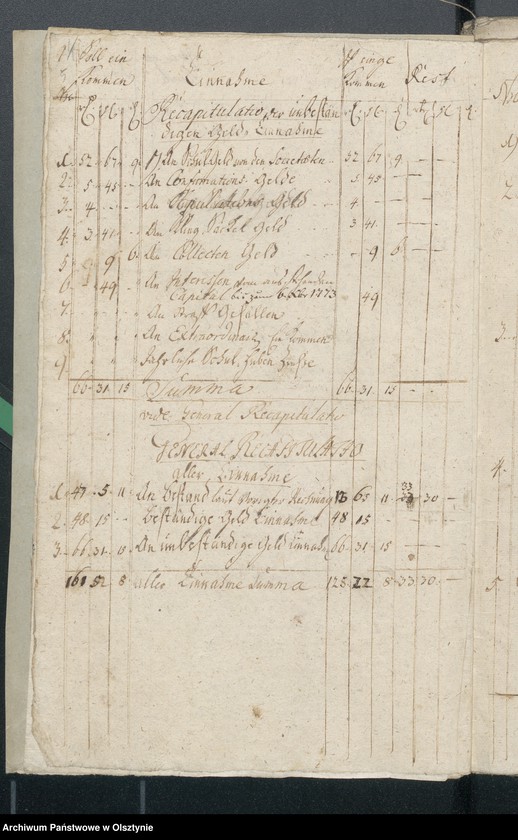 Soll ein Einnahme Ist einge Rest
kommen kommen
Recapitulatio der unbestän
digen Geld Einnahme
1. 52 67 9 An Schulgeld von den Societaeten 52 67 9
2. 5 45 An Confirmations Gelde 5 45
3. 4 An Copulations Geld 4
4. 3 41 An Kling Säckel Geld 3 41
5 9 6 An Collecten Geld 9 6
6 49 An Interessen vom
Capital bis zum 1773 49
7. An Straff Gefällen
8. An Extraordinair
9. Schul
66 31 15 Summa 66 31 15
vide General Recapitulatio
GENERAL RECAPITULATIO
aller Einnahme
1. 47 5 11 An Bestand laut voriger Rechnung 13 65 11 33 30
2. 48 15 Beständige Geld Einnahme 48 15
3. 66 31 15 An unbeständige Geld Einnahme 66 31 15
161 52 8 aller Einnahme Summa 128 22 8 33 30
2.
3.
4.
5
Archiwum Państwowe w Olsztynie